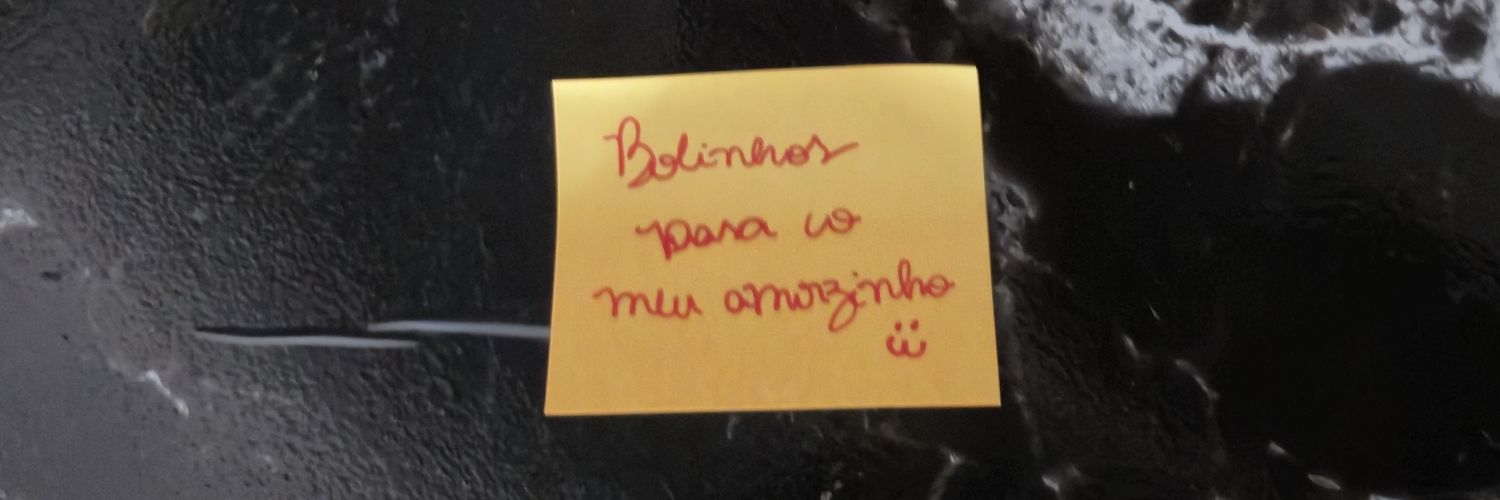 Bolinhos
para o
meu amorzinho